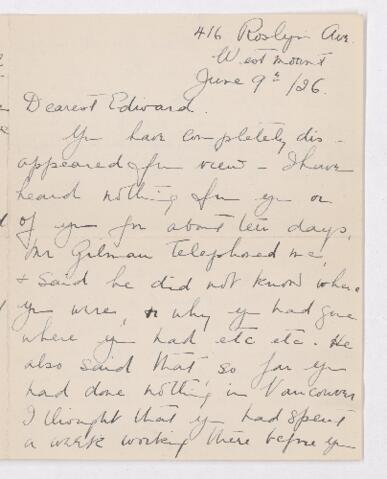 416 Roslyn Ave.
Westmount
June 9th /26.
Dearest Edward.
You have completely dis-
appeared from view - I have
heard nothing from you or
of you for about ten days.
Mr Gilman telephoned me,
+ said he did not know where
you were, or why you had gone
where you had etc etc. He
also said that so far you
had done nothing in Vancouver
I thought that you had spent
a week working there before you